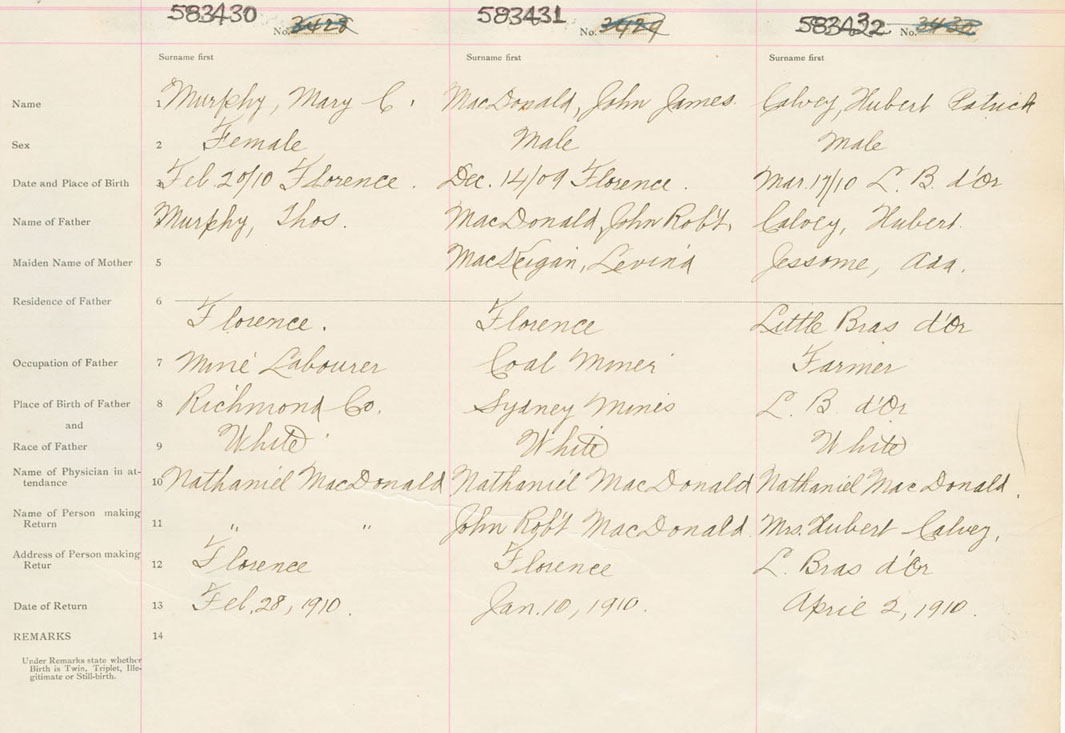 583430 No. 3428 583431 No. 3429 583432 No. 3430
Surname first Surname first Surname first
Name 1 Murphy, Mary C. MacDonald, John James. Calvey, Hubert Patrick
Sex 2 Female Male Male
Date and Place of Birth 3 Feb 20/10 Florence. Dec. 14/09 Florence. Mar. 17/10 L. B. d'Or
Name of Father Murphy, Thos. MacDonald, John Rob't. Calvey, Hubert.
Maiden Name of Mother 5 MacKeigan, Levina Jessome, Ada.
Residence of Father 6 Florence. Florence Little Bras d'Or
Occupation of Father 7 Mine Labourer Coal Miner Farmer
Place of Birth of Father 8 Richmond Co. Sydney Mines L. B. d'Or
and
Race of Father 9 White White White
Name of Physician in at-
tendance 10 Nathaniel MacDonald Nathaniel MacDonald Nathaniel MacDonald.
Name of Person making
Return 11 " " John Rob't MacDonald Mrs. Hubert Calvey.
Address of Person making
Retur 12 Florence Florence L. Bras d'Or
Date of Return 13 Feb. 28, 1910. Jan. 10, 1910. April 2, 1910.
REMARKS 14
Under Remarks state whether
Birth is Twin, Triplet, Ille-
gitimate or Still-birth.